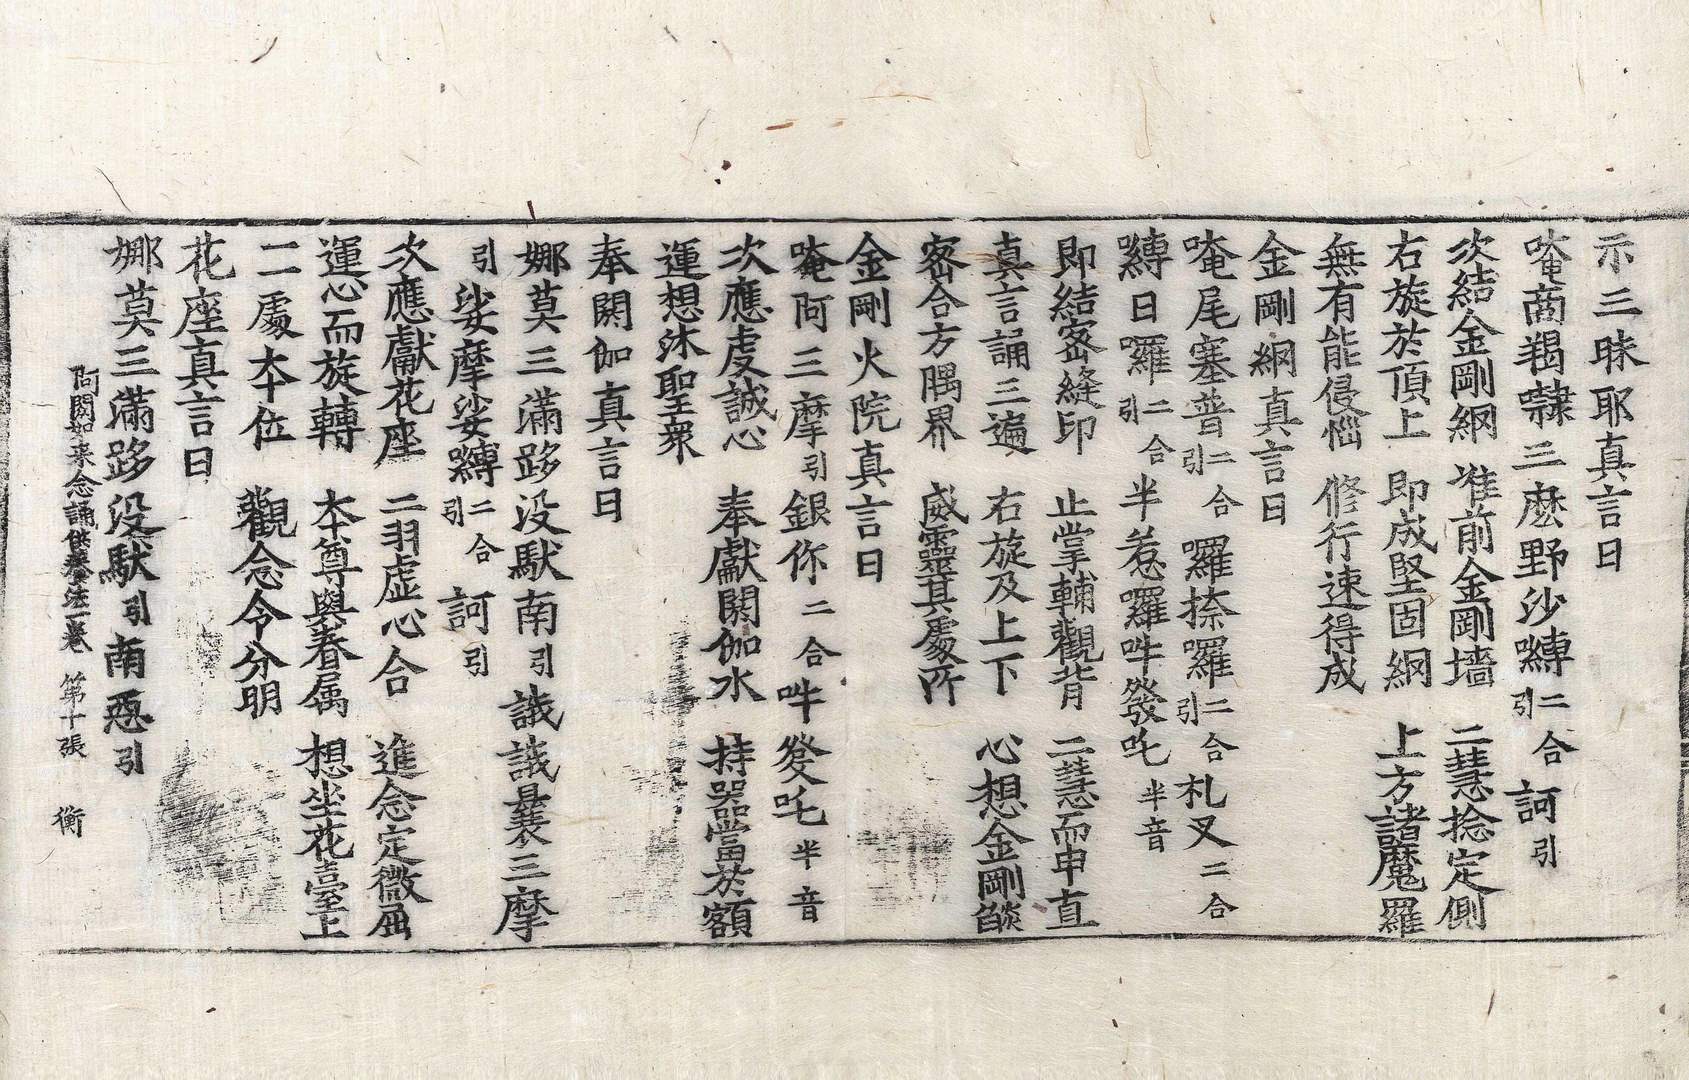 示三昧耶真言曰
唵商羯㘑三麽野沙嚩二合引訶引
次結金剛網 准前金剛墻 二慧捻定側
右旋於頂上 即成堅固網 上方諸魔羅
無有能侵惱 修行速得成
金剛網真言曰
唵尾塞普二合引囉捺囉二合引札叉二合
嚩日囉二合引半惹囉吽發吒半音
即結密縫印 止掌輔觀背 二慧而申直
真言誦三遍 右旋及上下 心想金剛焰
密合方隅界 威靈其處所
金剛火院真言曰
唵阿三摩引銀你二合吽發吒半音
次應虔誠心 奉獻閼伽水 持器當於額
運想沐聖衆
奉閼伽真言曰
娜莫三滿跢没馱南引誐誐曩三摩
引娑摩娑嚩二合引訶引
次應獻花座 二羽虛心合 進念定微屈
運心而旋轉 本尊與眷属 想坐花臺上
一一處本位 觀念令分明
花座真言曰
娜莫三滿跢没馱引南惡引
阿閦如来念誦供養法一卷 第十張 衡